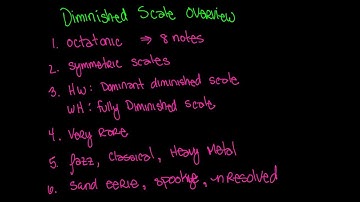 Diminished Scale overview
1. octatonic ⇒ 8 notes
2. Symmetric scales
3. HW: Dominant diminished scale
WH: Fully Diminished scale
4. Very Rare
5. Jazz, Classical, Heavy Metal
6. Sand eerie, spookye, unResolved